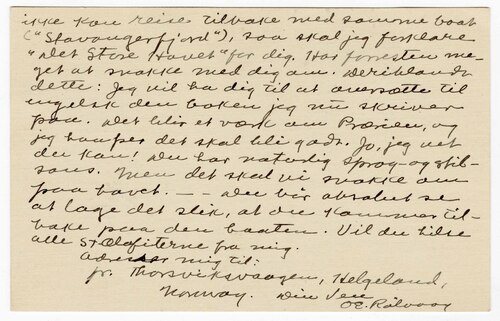 ikke kan reise tilbake med samme boat
("Stavangerfjord"), saa skal jeg forklare
"Det Store Havet" for dig. Har forresten me-
get at snakke med dig om. Deriblandt
dette: Jeg vil ha dig til at oversætte til
engelsk den boken jeg nu skriver
paa. Det blir et værk om Prærien, og
jeg haaper det skal bli godt. Jo, jeg vet
du kan! Du har naturlig Sprog- og stil-
sans. Men det skal vi snakke om
paa havet. — — Du bør absolut se
at lage det slik, at du kommer til-
bake paa den baaten. Vil du hilse
alle St Olafiterne fra mig.
Adresser mig til:
pr. Thorsviksvaagen, Helgeland,
Norway. Din Ven
O E. Rölvaag